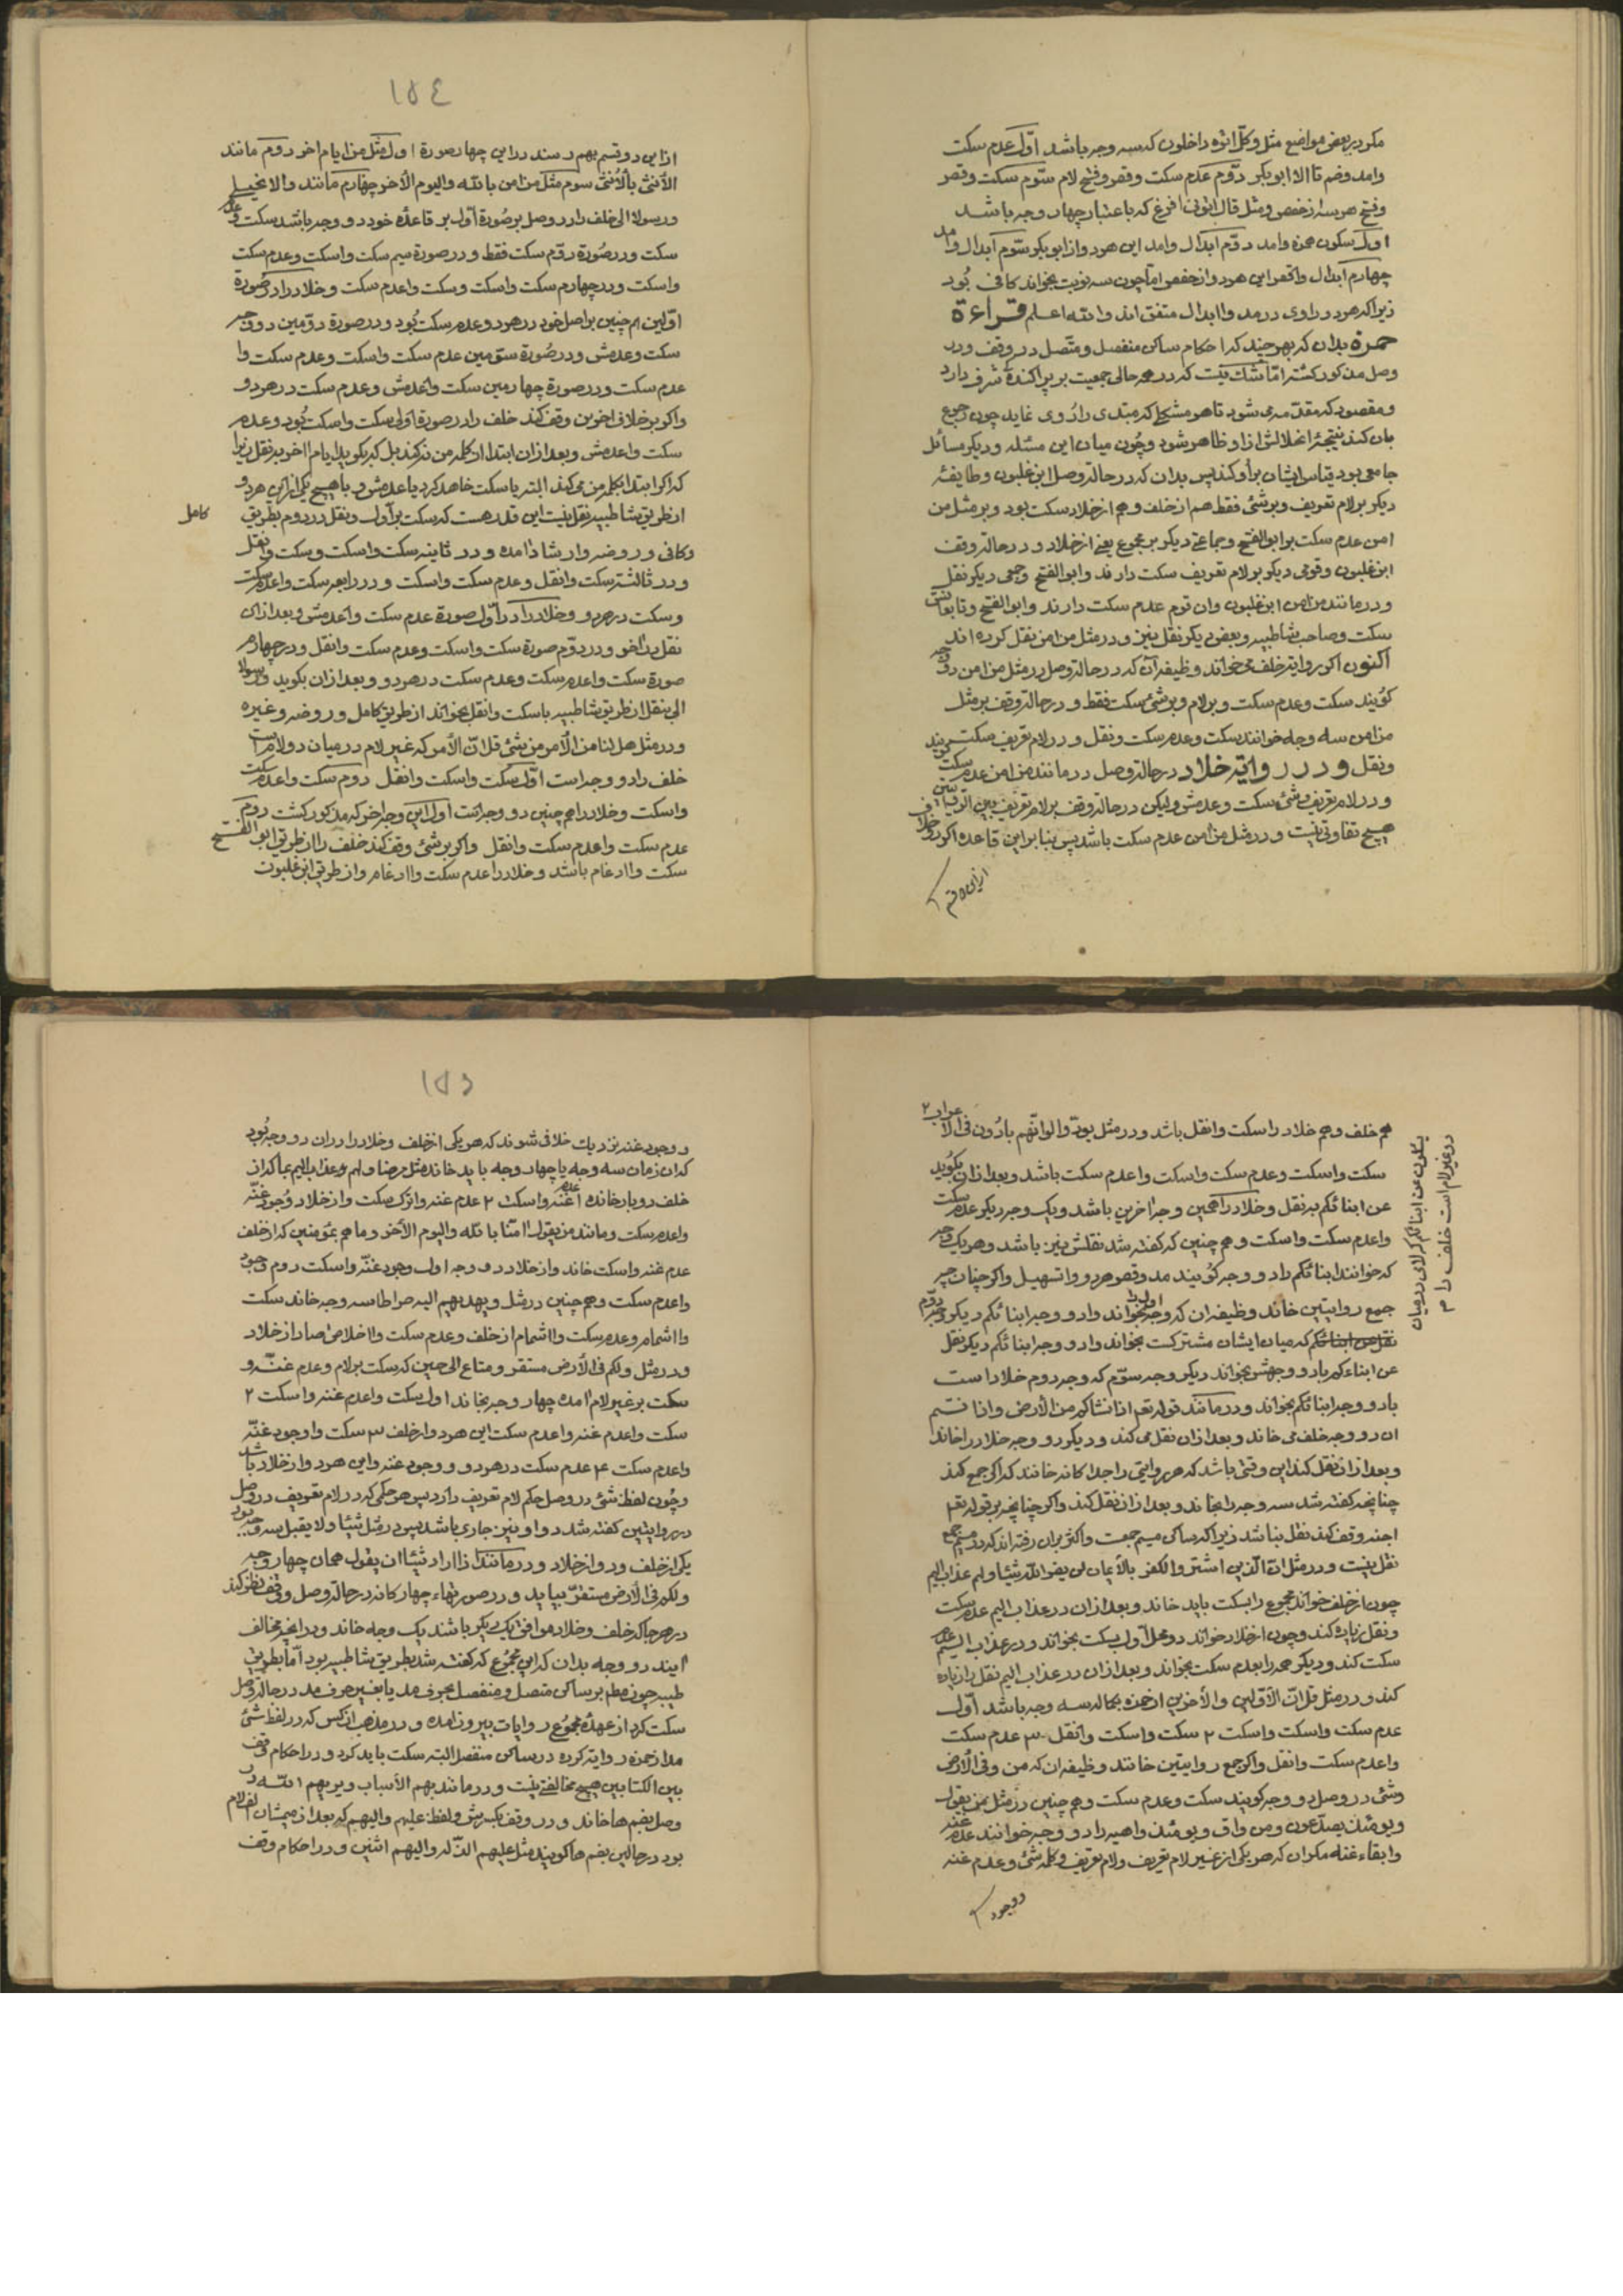 مکر در بعضی مواضع مثل وکلّ اتوه داخرون که سه وجه باشد اوّل عدم سکت
وامد وضم تا الا ابوبکر دوّم عدم سکت وقصر وفتح لام سوّم سکت وقصر
وفتح هر سه از حفص ومثل قال اتونی افرغ که باعتبار چهار وجه باشد
اول سکون همزه وامد دوّم ابدال وامد این هر دو از ابوبکر سوّم ابدال وامد
چهارم ابدال واقصر این هر دو از حفص امّا چون سه نوبت بخواند کافی بُود
زیرا که هر دو راوی در مد واابدال متفق اند والله اعلم قراءة
حمزة بدان که هر چند که احکام ساکن منفصل ومتّصل در وقف ودر
وصل مذکور کشت امّا شک نیست که در همه حالی جمعیت بر پراکنده شرف دارد
ومقصود که مقدّمه می شود تا هر مشکلی که مبتدی را رُوی نماید چون رجوع
بآن کند نتیجهٔ انحلالش از او ظاهر شود وچُون میان این مسئله ودیکر مسائل
جامعی بود قیاس ایشان برآو کند پس بدان که در حالة وصل ابن غلبون وطایفهٔ
دیکر بر لام تعریف وبر شئ فقط هم از خلف وهم از خلاد سکت بود وبر مثل من
امن عدم سکت بر ابو الفتح وجماعتی دیکر بر مجموع یعنی از خلاد ودر حالة وقف
ابن غلبون وقومی دیکر بر لام تعریف سکت دارند وابو الفتح وجمعی دیکر نقل
ودر مانند من امن ابن غلبون وان قوم عدم سکت دارند وابو الفتح وتابعانش
سکت وصاحب شاطبیه وبعضی دیکر نقل نیز ودر مثل من امن نقل کرده اند
اکنون اکر بروایة خلف می خواند وظیفه آن که در حالة وصل در مثل من امن دو وجه
کویند سکت وعدم سکت وبر لام وبر شئ سکت فقط ودر حالة وقف بر مثل
من امن سه وجه خوانند سکت وعدم سکت ونقل ودر لام تعریف سکت کویند
ونقل ودر روایة خلاد در حالة وصل در مانند من امن عدم سکت
ودر لام تعریف وشئ سکت وعدمش ولیکن در حالة وقف بر لام تعریف بین الروایتین
هیچ تفاوتی نیست ودر مثل من امن عدم سکت باشد پس بنا بر این قاعده اکر دو خلاف
از این دو قسم
١٥٤
از این دو قسم بهم رسند در این چهار صورة اول مثل من ایام اخر دوم مانند
الاُنثی بالاُنثی سوم مثل من امن بالله والیوم الاخر چهارم مانند والانجیل
ورسولا الی خلف را در وصل بر صُورة اول بر قاعدهٔ خود دو وجه باشد سکت وعدم
سکت ودر صُورة دوّم سکت فقط ودر صورة سیم سکت واسکت وعدم سکت
واسکت ودر چهارم سکت واسکت وسکت واعدم سکت وخلاد را در صُورة
اوّلین هم چنین بر اصل خود در هر دو عدم سکت بُود ودر صورة دوّمین دو وجه
سکت وعدمش ودر صُورة سوّمین عدم سکت واسکت وعدم سکت وا
عدم سکت ودر صورة چهارمین سکت واعدمش وعدم سکت در هر دو
واکر بر خلاف اخرین وقف کند خلف را در صورة اولی سکت واسکت بُود وعدم
سکت واعدمش وبعد از ان ابتدا از کلمه من نکند بل که بکوید ایام اخر به نقل زیرا
که اکر ابتدا بکلمه من می کند البته یا سکت خاهد کرد یا عدمش وبا هیچ یکی از این هر دو
از طریق شاطبیه نقل نیست این قدر هست که سکت بر اول ونقل در دوم بطریق کامل
وکافی وروضه وارشاد امده ودر ثانیه سکت واسکت وسکت ونقل
ودر ثالثه سکت وانقل وعدم سکت واسکت ودر رابعه سکت واعدم سکت
وسکت در هر دو وخلاد را در اوّل صورة عدم سکت واعدمش وبعد از ان
نقل در اخر ودر دوّم صورة سکت واسکت وعدم سکت وانقل ودر چهارم
صورة سکت واعدم سکت وعدم سکت در هر دو وبعد از ان بکوید ورسولا
الی بنقل از طریق شاطبیه باسکت وانقل بخواند از طریق کامل وروضه وغیره
ودر مثل هل لنا من الاَمر من شئ قل انّ الاَمر که غیر لام در میان دو لام است
خلف را دو وجه است اوّل سکت واسکت وانقل دوم سکت واعدم سکت
واسکت وخلاد را هم چنین دو وجه است اول این وجه اخر که مذکور کشت دوم
عدم سکت واعدم سکت وانقل واکر بر شئ وقف کند خلف را از طریق ابو الفتح
سکت واادغام باشد وخلاد را عدم سکت واادغام واز طریق ابن غلبون
هم خلف وهم خلاد را سکت وانقل باشد ودر مثل یودّوا لو انّهم بادُون فی الاَعراب ٢
سکت واسکت وعدم سکت واسکت واعدم سکت باشد وبعد از ان بکُوید
عن ابنائکم به نقل وخلاد را همچین وجه اخرین باشد ویک وجه دیکر عدم سکت
واعدم سکت واسکت وهم چنین که کفته شد نقلش نیز باشد وهر یک وجه
که خوانند ابنائکم را دو وجه کُویند مد وقصر هر دو واتسهیل واکر چنان چه
جمع روایتین خاند وظیفه ان که وجه اول را بخواند وادو وجه ابنائکم دیکر وجه دوّم
که میان ایشان مشترکست بخواند وادو وجه ابنائکم دیکر نقل
عن ابنائکم بادو وجهش بخواند دیکر وجه سوّم که وجه دوم خلاد است
بادو وجه ابنائکم بخواند ودر مانند قوله تعم اذا نشاکم من الاَرض واذا قسم
ان دو وجه خلف می خاند وبعد از ان نقل می کند ودیکر دو وجه خلاد را خاند
وبعد از ان نقل کند این وقتی باشد که هر روایتی را جدا کانه خانند که اکر جمع کند
چنانچه کفته شد سه وجه را بخاند وبعد از ان نقل کند واکر چنانچه بر قوله تعم
اجنه وقف کند نقل نباشد زیرا که ساکن میم جمعست واکثر بر ان رفته اند که در میم جمع
نقل نیست ودر مثل انّ الّذین اشتروا الکفر بالاَیمان لن یضروا الله شیئا ولهم عذاب الیم
چون از خلف خواند مجموع را بسکت باید خاند وبعد از ان در عذاب الیم عدم سکت
ونقل زیاده کند وچون از خلاد خواند در محل اول بسکت بخواند ودر عذاب الیم عدم
سکت کند ودیکر همه را بعدم سکت بخواند وبعد از ان در عذاب الیم نقل را زیاده
کند ودر مثل قل انّ الاَوّلین والاَخرین از حمزه بکماله سه وجه باشد اوّل
عدم سکت واسکت واسکت ٢ سکت واسکت وانقل ٣ عدم سکت
واعدم سکت وانقل واکر جمع روایتین خانند وظیفه ان که من وفی الاَرض
وشئ در وصل دو وجه کویند سکت وعدم سکت وهم چنین در مثل من یقول
ویومئذ یصدّعون ومن واق ویومئذ واهیه را دو وجه خوانند عدم غنه
وابقاء غنه مکر ان که هر یکی از غیر لام تعریف ولام تعریف وکلمه شئ وعدم غنه
ووجود
یسئلون عن انبائکم که لام در میان
دو غیر لام است خلف را ٣
١٥٥
ووجود غنه نزدیک خلاف شوند که هر یکی از خلف وخلاد را در ان دو وجه بُود
که ان زمان سه وجه یا چهار وجه باید خاند مثل مرضا ولهم عذاب الیم بما که از
خلف دو بار خانده ١ عدم غنه واسکت ٢ عدم غنه واترک سکت واز خلاد وجود غنّه
واعدم سکت ومانند من یقول امنّا بالله والیوم الاَخر وما هم بمؤمنین که از خلف
عدم غنه واسکت خاند واز خلاد دو وجه اول وجود غنّه واسکت دوم وجود
واعدم سکت وهم چنین در مثل ویهدیهم الیه صراطا سه وجه خاند سکت
وااشمام وعدم سکت وااشمام از خلف وعدم سکت وااخلاص صاد از خلاد
ودر مثل ولکم فی الاَرض مستقر ومتاع الی حین که سکت بر لام وعدم غنّه و
سکت بر غیر لام امده چهار وجه بخاند اول سکت واعدم غنه واسکت ٢
سکت واعدم غنه واعدم سکت این هر دو از خلف ٣ سکت واوجود غنّه
واعدم سکت ٤ عدم سکت در هر دو ووجود غنه واین هر دو از خلاد باشد
وچُون لفظ شئ در وصل حکم لام تعریف دارد پس هر حکمی که در لام تعریف در وصل
در روایتین کفته شد در او نیز جاری باشد پس در مثل شیئا ولا یقبل سه وجه بود
یکی از خلف ودو از خلاد ودر مانند اذا اراد شیئا ان یقول همان چهار وجه
ولکم فی الاَرض مستقرّ بیاید ودر صورتهاء چهارکانه در حالة وصل وقف نظر کند
در هر جا که خلف وخلاد موافق یک دیکر باشند یک وجه خاند ودر انچه مخالف
ایند دو وجه بدان که این مجموع که کفته شد بطریق شاطبیه بود امّا بطریق
طیبه چون مطم بر ساکن متصل ومنفصل بحرف مد یا بغیر حرف مد در حالة وصل
سکت کرد از عهدهٔ مجمُوع روایات بیرون امده ودر مذهب ان کس که در لفظ شئ
مد از حمزه روایة کرده در ساکن منفصل البته سکت باید کرد ودر احکام وقف
بین الکتابین هیچ مخالفتی نیست ودر مانند بهم الاَسباب ویریهم الله در
وصل بضم ها خاند ودر وقف بکسرش ولفظ علیهم والیهم که بعد از میمشان الف لام
بود در حالین بضم ها کویند مثل علیهم الذّلة والیهم اثنین ودر احکام وقف